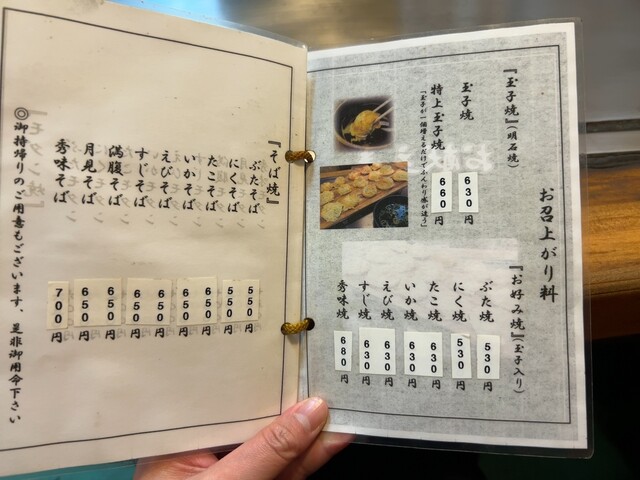 お召上がり料
『玉子焼』(明石焼)
玉子焼 630円
特上玉子焼 660円
「玉子が一個増えるだけでふんわり感が違う」
『お好み焼』(玉子入り)
ぶた焼 530円
にく焼 530円
たこ焼 630円
いか焼 630円
えび焼 630円
すじ焼 630円
秀味焼 680円
『そば焼』
ぶたそば 550円
にくそば 550円
たこそば 650円
いかそば 650円
えびそば 650円
すじそば 650円
満腹そば 650円
月見そば 650円
秀味そば 700円
◎御持帰りのご用意もございます、是非御用命下さい